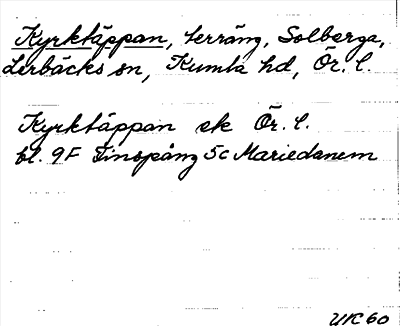 Kyrktäppan, terräng, Solberga,
Lerbäcks sn, Kumla hd, Ör. l.
Kyrktäppan ek Ör. l.
bl. 9F Finspång 5c Mariedamm
UK 60